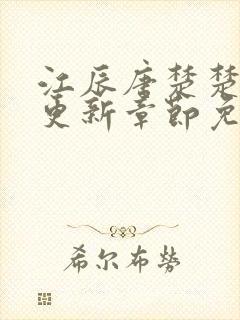 江辰唐楚楚
更新章節免
希尔布勞